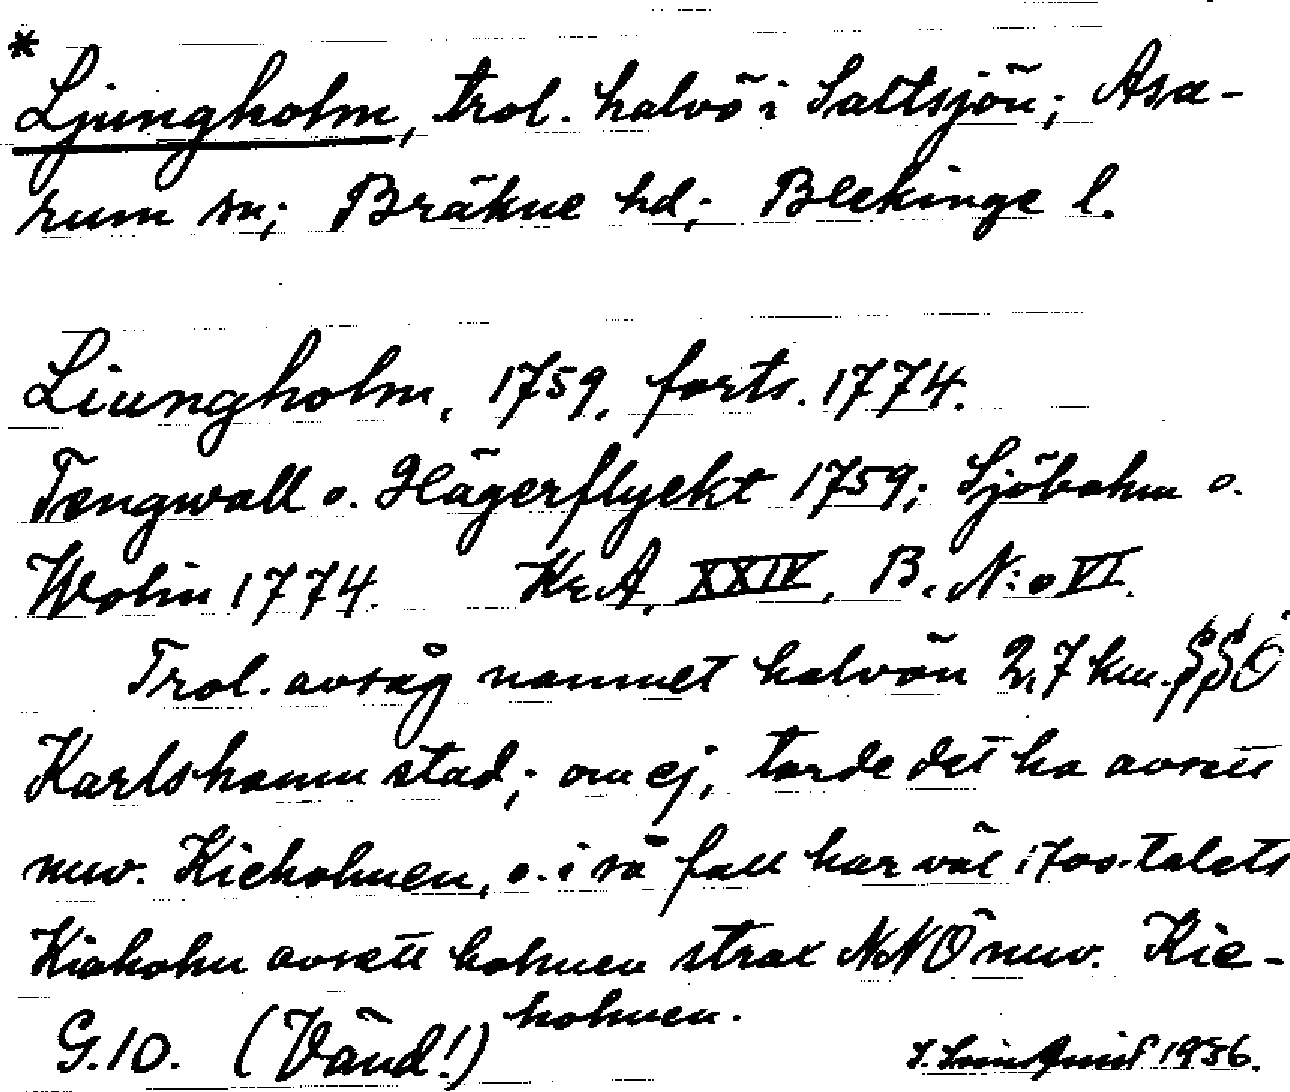 * Ljungholm, trol. halvö i Saltsjön; Asa-
rum sn; Bräkne hd; Blekinge l.
Liungholm, 1759, forts. 1774.
Tengwall o. Hägerflyckt 1759; Sjöbohm o.
Wolin 1774. Kr.A. XXIV, B. N:o VI.
Trol. avsåg namnet halvön 2,7 km. SSÖ
Karlshamn stad; om ej, torde det ha avsett
nuv. Kieholmen, o. i så fall har väl 1700-talets
Kiaholm avsett holmen strax NNÖ nuv. Kie-
holmen.
G.10. (Vänd!)
1956.